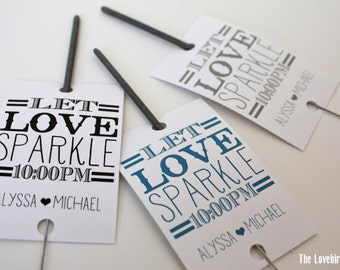 LET
LOVE
SPARKLE
10:00PM
ALYSSA ♥ MICHAEL
LET
LOVE
SPARKLE
10:00PM
ALYSSA ♥ MICHAEL
LET
LOVE
SPARKLE
10:00PM
ALYSSA ♥ MICHAEL
The Lovebir